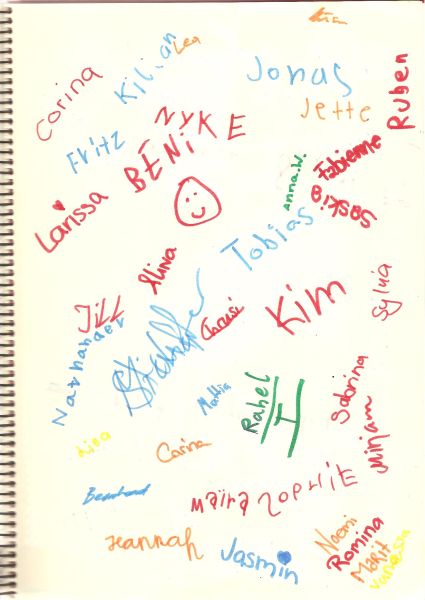 Kilian
Lea
Corina
Jonas
Jette
Ruben
Fritz
NYKE
BENi
Fabienne
anna.W.
Saskia
Larissa
Tobias
Alina
Jill
Kim
Sylvia
Mattia
Rahel
I
Sabrina
Mirjam
Lisa
Carina
Bernhard
Maira
Sophie
Hannah
Jasmin
Noemi
Romina
Marit
Vanessa